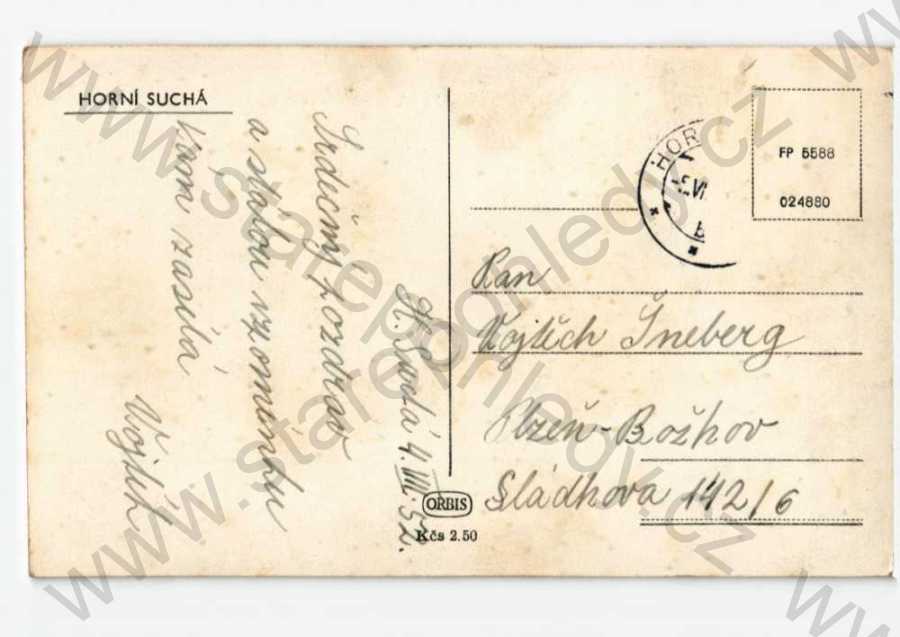 HORNÍ SUCHÁ
H. Suchá 4. VII. 52.
Srdečný pozdrav
a stálou vzpomínku
Vám zasílá
Vojtěch
HOR
FP 5588
024880
Pan
Vojtěch Šneberg
Plzeň-Božkov
Sládkova 142/6
ORBIS
Kčs 2.50
www.starepohledy.cz
www.starepohledy.cz